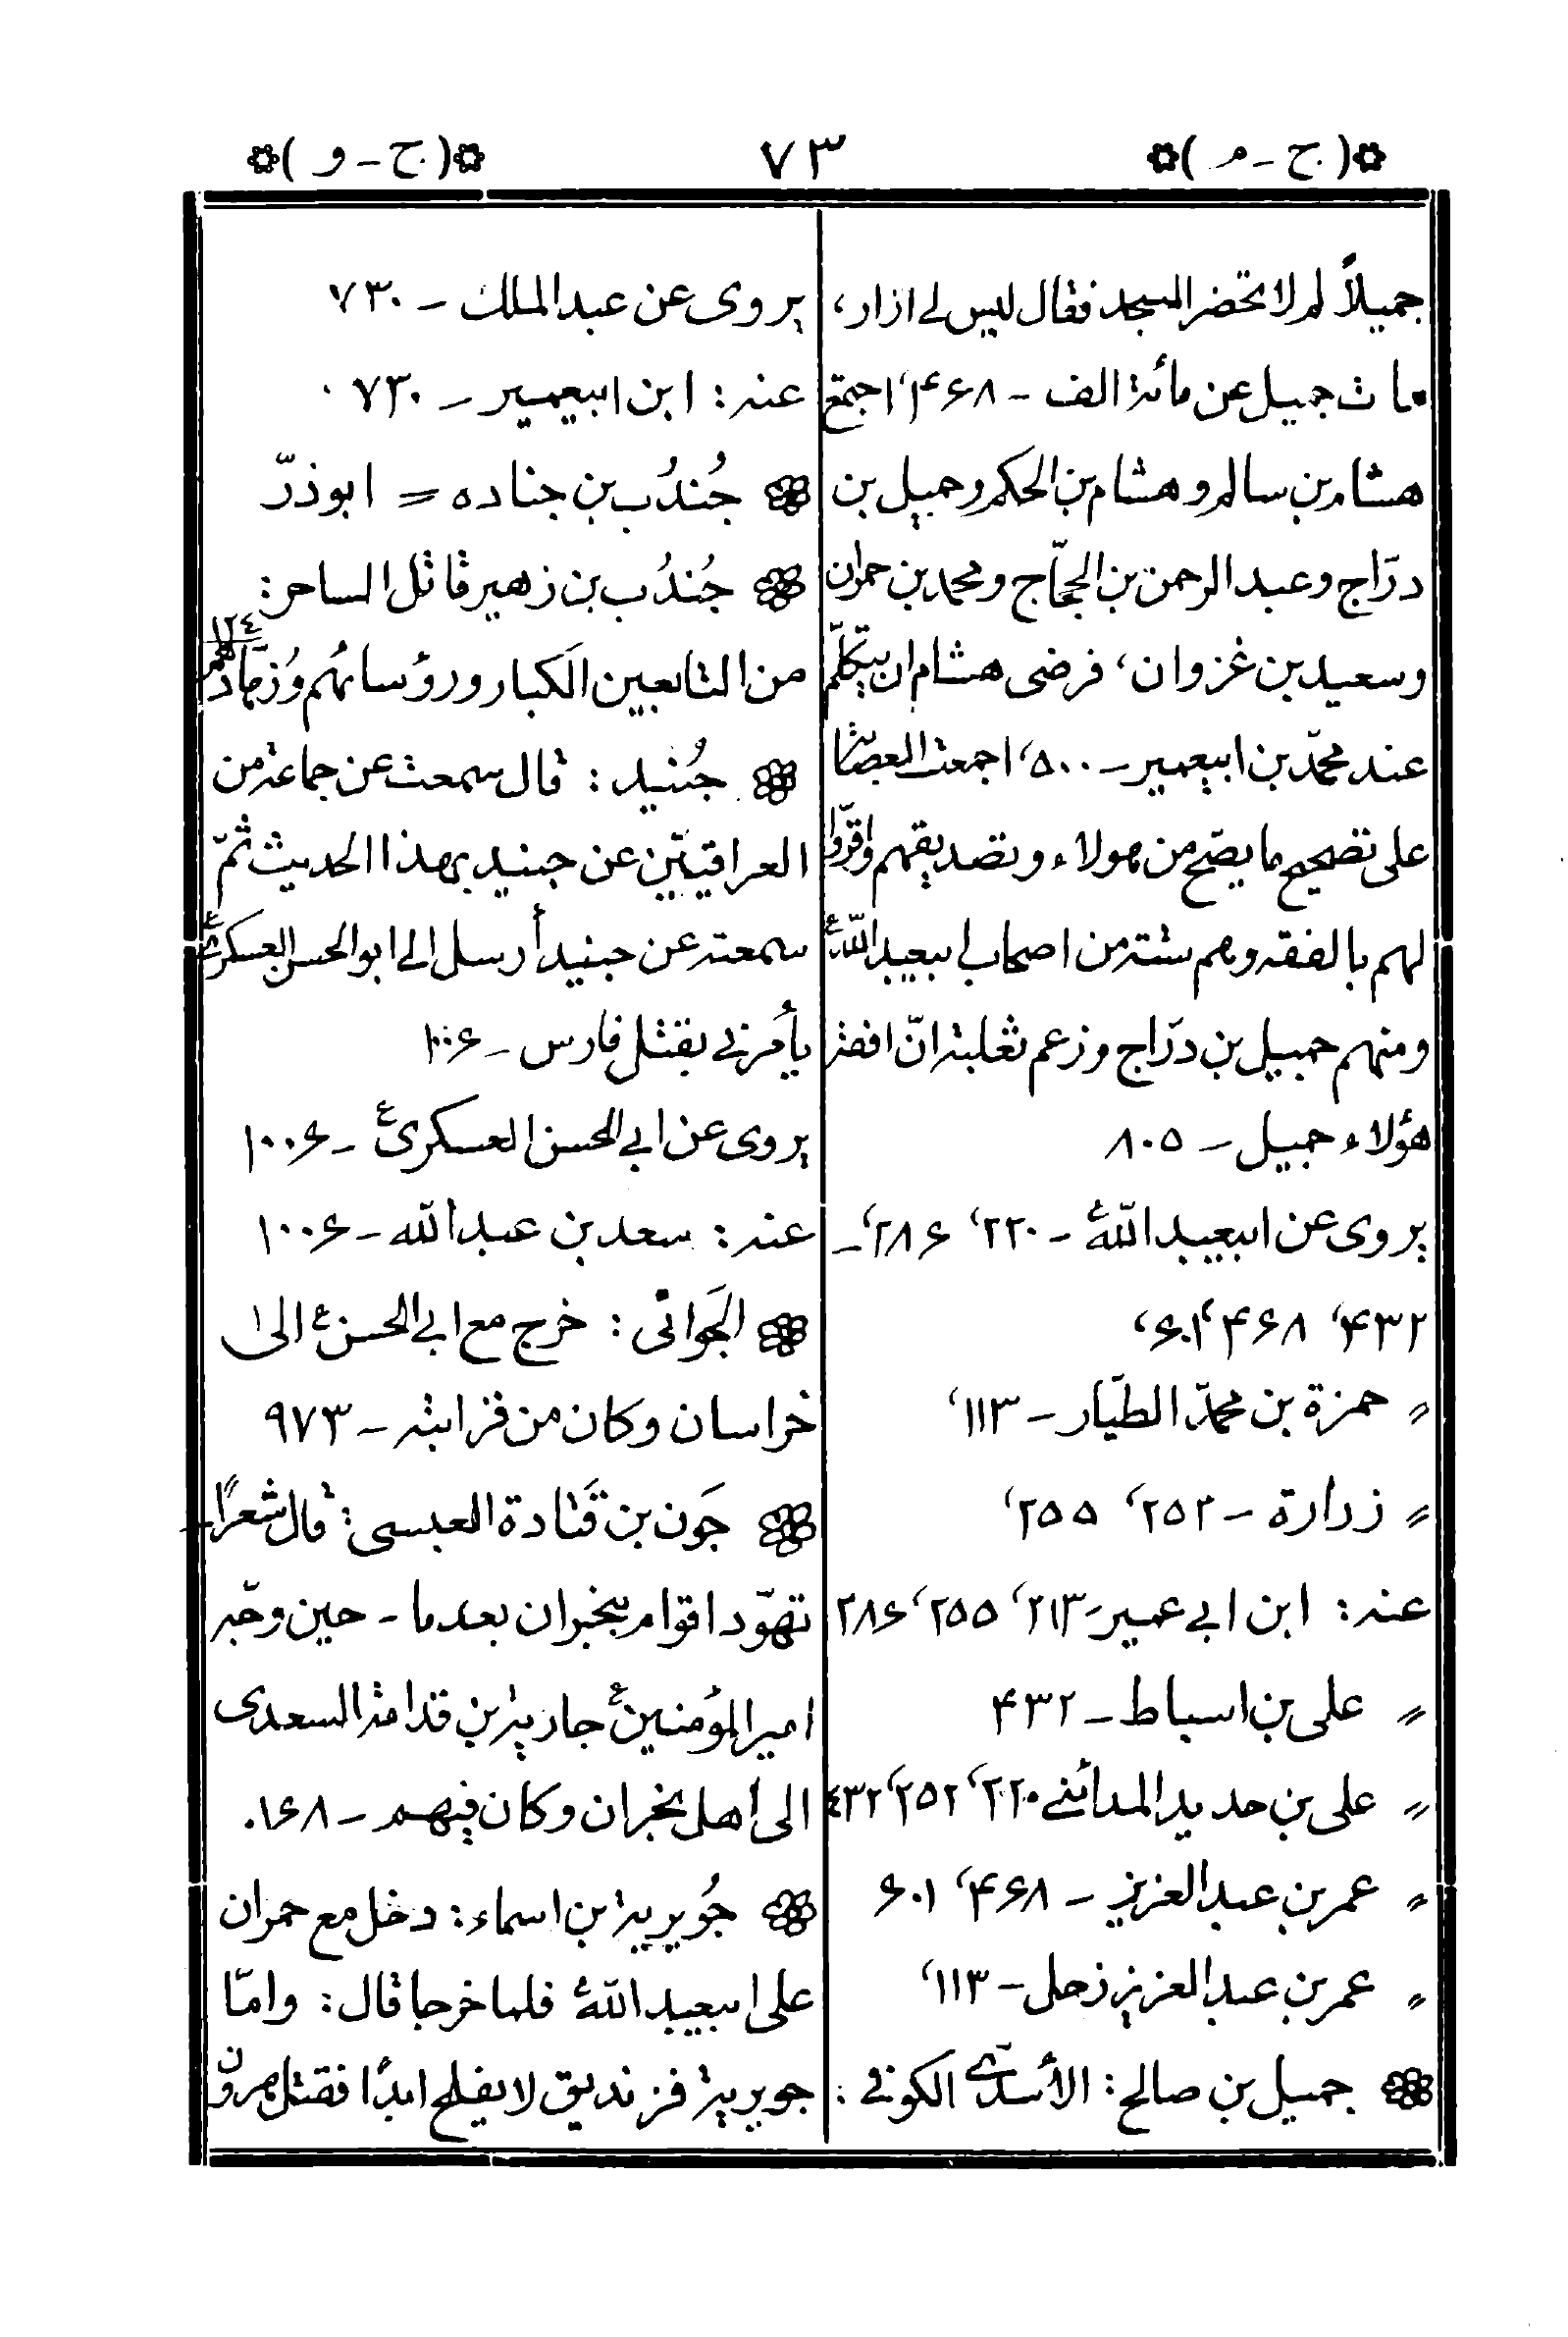 (ج - م)
٧٣
(ج - و)
جميلاً لم لا تحضر المسجد فقال ليس لى ازار،
مات جميل عن مائة الف - ۴۶٨، اجتمع
هشام بن سالم و هشام بن الحكم و جميل بن
درّاج و عبد الرحمن بن الحجّاج و محمد بن حمران
و سعيد بن غزوان، فرضى هشام ان يتكلّم
عند محمّد بن ابيعمير - ۵۰۰، اجمعت العصابة
على تصحيح ما يصحّ من هولاء و تصديقهم و اقرّوا
لهم بالفقه وهم ستة من اصحاب ابيعبد اللّهؑ
و منهم جميل بن درّاج و زعم ثعلبة انّ افقه
هؤلاء جميل - ٨٠۵
يروى عن ابيعبد اللّهؑ - ٢٢٠، ٢٨۶، -
۴٣٢، ۴۶٨، ۶٠١،
〃 حمزة بن محمّد الطيّار - ١١٣،
〃 زرارة - ٢۵٢، ٢۵۵،
عنه: ابن ابي عمير - ٢١٣، ٢۵۵، ٢٨۶
〃 على بن اسباط - ۴٣٢
〃 على بن حديد المدائنى ٢٢٠، ٢۵٢، ٤٣٢
〃 عمر بن عبد العزيز - ۴۶٨، ۶٠١
〃 عمر بن عبد العزيز زحل - ١١٣،
جميل بن صالح: الأسدىّ الكوفى:
يروى عن عبد الملك - ٧٣٠
عنه: ابن ابيعمير - ٧٣٠
جُندُب بن جناده = ابوذرّ
جُندُب بن زهير قاتل الساحر:
من التابعين الكبار و رؤسائهم و زهّادهم ١٢٤
جُنيد: قال سمعت عن جماعة من
العراقيّين عن جنيد بهذا الحديث ثمّ
سمعته عن جنيد أرسل الى ابوالحسن العسكرىؑ
يأمرنى بقتل فارس - ١٠٠۶
يروى عن ابي الحسن العسكرىؑ - ١٠٠۶
عنه: سعد بن عبد اللّه - ١٠٠۶
الجَوانى: خرج مع ابي الحسنؑ الى
خراسان و كان من قرابته - ٩٧٣
جَون بن قَتادة العبسى: قال شعرًا
تهوّد اقوام بنجران بعد ما - حين وجّه
امير المؤمنينؑ جارية بن قدامة السعدى
الى أهل نجران و كان فيهم - ١۶٨.
جُويرية بن اسماء: دخل مع حمران
على ابيعبد اللّهؑ فلما خرجا قال: و امّا
جويرية فزنديق لا يفلح ابدًا فقتله هرون